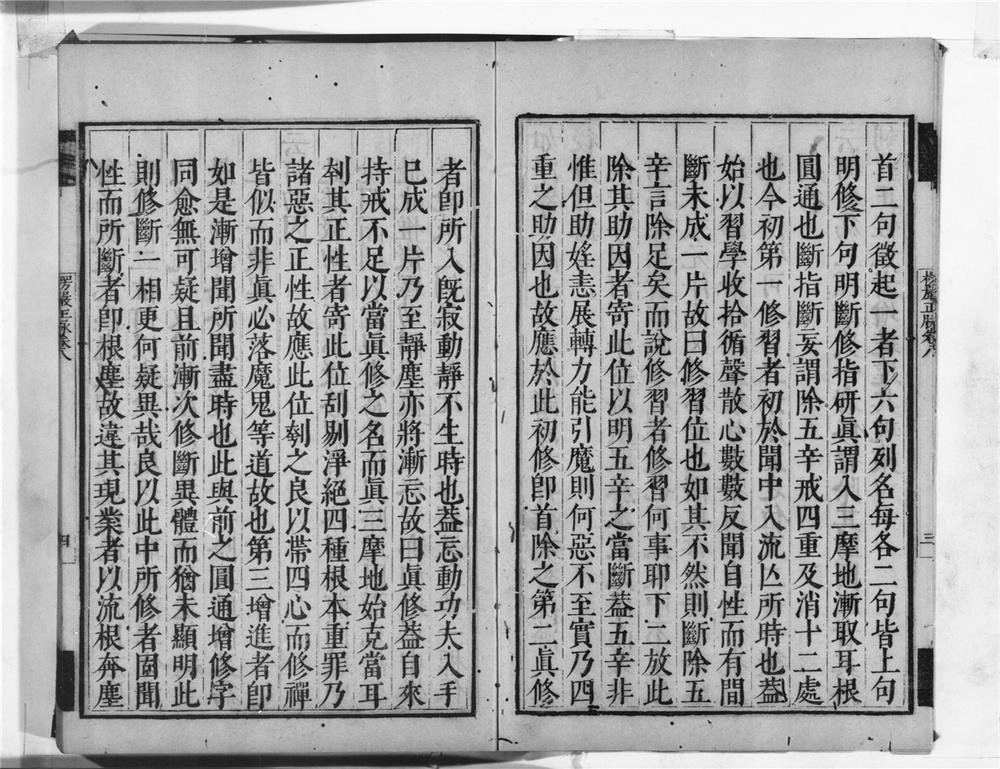 首二句徵起一者下六句列名每各二句皆上句
明修下句明斷修指研眞謂入三摩地漸取耳根
圓通也斷指斷妄謂除五辛戒四重及消十二處
也今初第一修習者初於聞中入流亾所時也葢
始以習學收拾循聲散心數數反聞自性而有間
斷未成一片故曰修習位也如其不然則斷除五
辛言除足矣而說修習者修習何事耶下二放此
除其助因者寄此位以明五辛之當斷葢五辛非
惟但助婬恚展轉力能引魔則何惡不至實乃四
重之助因也故應於此初修卽首除之第二眞修
楞嚴正脉卷八
三
者卽所入旣寂動靜不生時也葢忘動功夫入手
巳成一片乃至靜塵亦將漸忘故曰眞修葢自來
持戒不足以當眞修之名而眞三摩地始克當耳
刳其正性者寄此位刮剔淨絕四種根本重罪乃
諸惡之正性故應此位刳之良以帶四心而修禪
皆似而非眞必落魔鬼等道故也第三增進者卽
如是漸增聞所聞盡時也此與前之圓通增修字
同愈無可疑且前漸次修斷異體而猶未顯明此
則修斷一相更何疑異哉良以此中所修者圓聞
性而所斷者卽根塵故違其現業者以流根奔塵
楞嚴正脉卷八
四